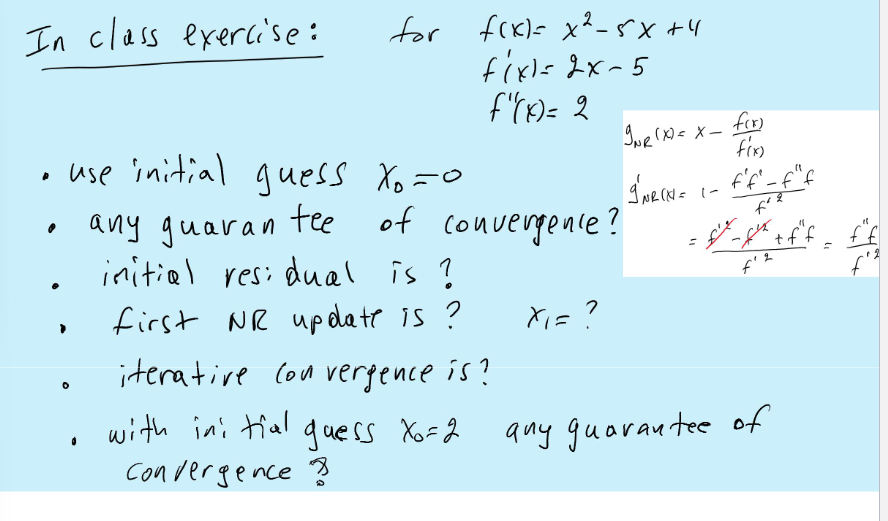 In class exercise: for f(x)= x²-5x+4
f'(x)= 2x-5
f''(x)= 2
g_NR(x)= x - f(x)/f'(x)
g'_NR(x)= 1- (f'f'-f''f)/f'²
= (f'²-f'²+f''f)/f'² = f''f/f'²
• use initial guess x₀=0
• any guarantee of convergence?
• initial residual is ?
• first NR update is ? x₁= ?
• iterative convergence is?
• with initial guess x₀=2 any guarantee of
convergence ?